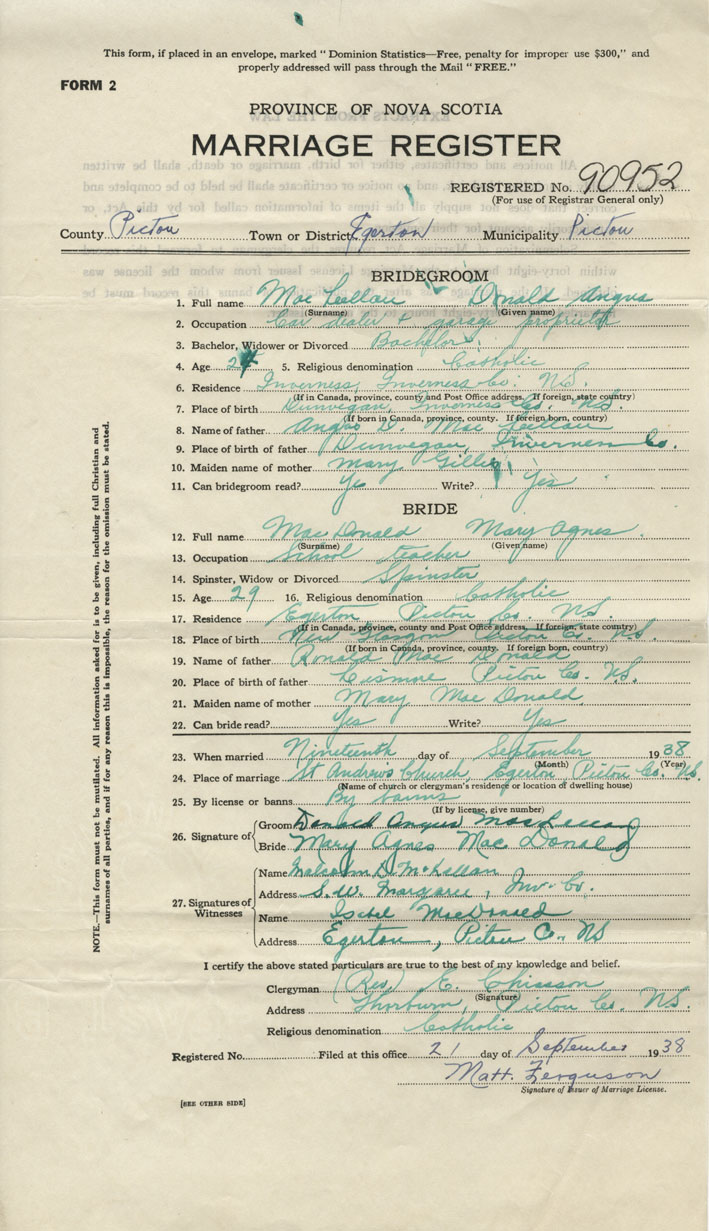 This form, if placed in an envelope, marked " Dominion Statistics—Free, penalty for improper use $300," and
properly addressed will pass through the Mail " FREE."
FORM 2
PROVINCE OF NOVA SCOTIA
MARRIAGE REGISTER
REGISTERED No. 90952
(For use of Registrar General only)
County Pictou Town or District Egerton Municipality Pictou
BRIDEGROOM
1. Full name MacLellan Donald Angus
(Surname) (Given name)
2. Occupation Car dealer + garage
3. Bachelor, Widower or Divorced Bachelor
4. Age 5. Religious denomination Catholic
6. Residence Inverness, Inverness Co. N.S.
(If in Canada, province, county and Post Office address. If foreign, state country)
7. Place of birth Dunvegan, Inverness Co. N.S.
(If born in Canada, province, county. If foreign born, country)
8. Name of father Angus D. MacLellan
9. Place of birth of father Dunvegan, Inverness Co.
10. Maiden name of mother Mary Gillis
11. Can bridegroom read? Yes Write? Yes
BRIDE
12. Full name MacDonald Mary Agnes
(Surname) (Given name)
13. Occupation School teacher
14. Spinster, Widow or Divorced Spinster
15. Age 29 16. Religious denomination Catholic
17. Residence Egerton Pictou Co. N.S.
(If in Canada, province, county and Post Office address. If foreign, state country)
18. Place of birth New Glasgow Pictou Co. N.S.
(If born in Canada, province, county. If foreign born, country)
19. Name of father Ronald MacDonald
20. Place of birth of father Lismore Pictou Co. N.S.
21. Maiden name of mother Mary MacDonald
22. Can bride read? Yes Write? Yes
23. When married Nineteenth day of September 1938
(Month) (Year)
24. Place of marriage St Andrew's Church, Egerton Pictou Co. N.S.
(Name of church or clergyman's residence or location of dwelling house)
25. By license or banns By banns
(If by license, give number)
26. Signature of Groom Donald Angus MacLellan
Bride Mary Agnes MacDonald
27. Signatures of Witnesses Name Malcolm D. McLellan
Address S.W. Margaree, Inv. Co.
Name Isabel MacDonald
Address Egerton, Pictou Co. NS
I certify the above stated particulars are true to the best of my knowledge and belief.
Clergyman (Rev) E. Chiasson
(Signature)
Address Thorburn, Pictou Co. N.S.
Religious denomination Catholic
Registered No. Filed at this office 21 day of September 1938
Matt. Ferguson
Signature of Issuer of Marriage License.
[SEE OTHER SIDE]
NOTE.—This form must not be mutilated. All information asked for is to be given, including full Christian and
surnames of all parties, and if for any reason this is impossible, the reason for the omission must be stated.